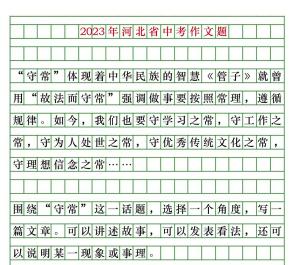 2023年河北省中考作文题
“守常”体现着中华民族的智慧《管子》就曾
用“故法而守常”强调做事要按照常理，遵循
规律。如今，我们也要守学习之常，守工作之
常，守为人处世之常，守优秀传统文化之常，
守理想信念之常……
围绕“守常”这一话题，选择一个角度，写一
篇文章。可以讲述故事，可以发表看法，还可
以说明某一现象或事理。